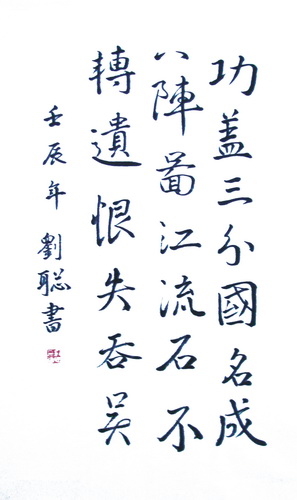 功盖三分國名成
八陣圖江流石不
轉遺恨失吞吳
壬辰年劉聡書